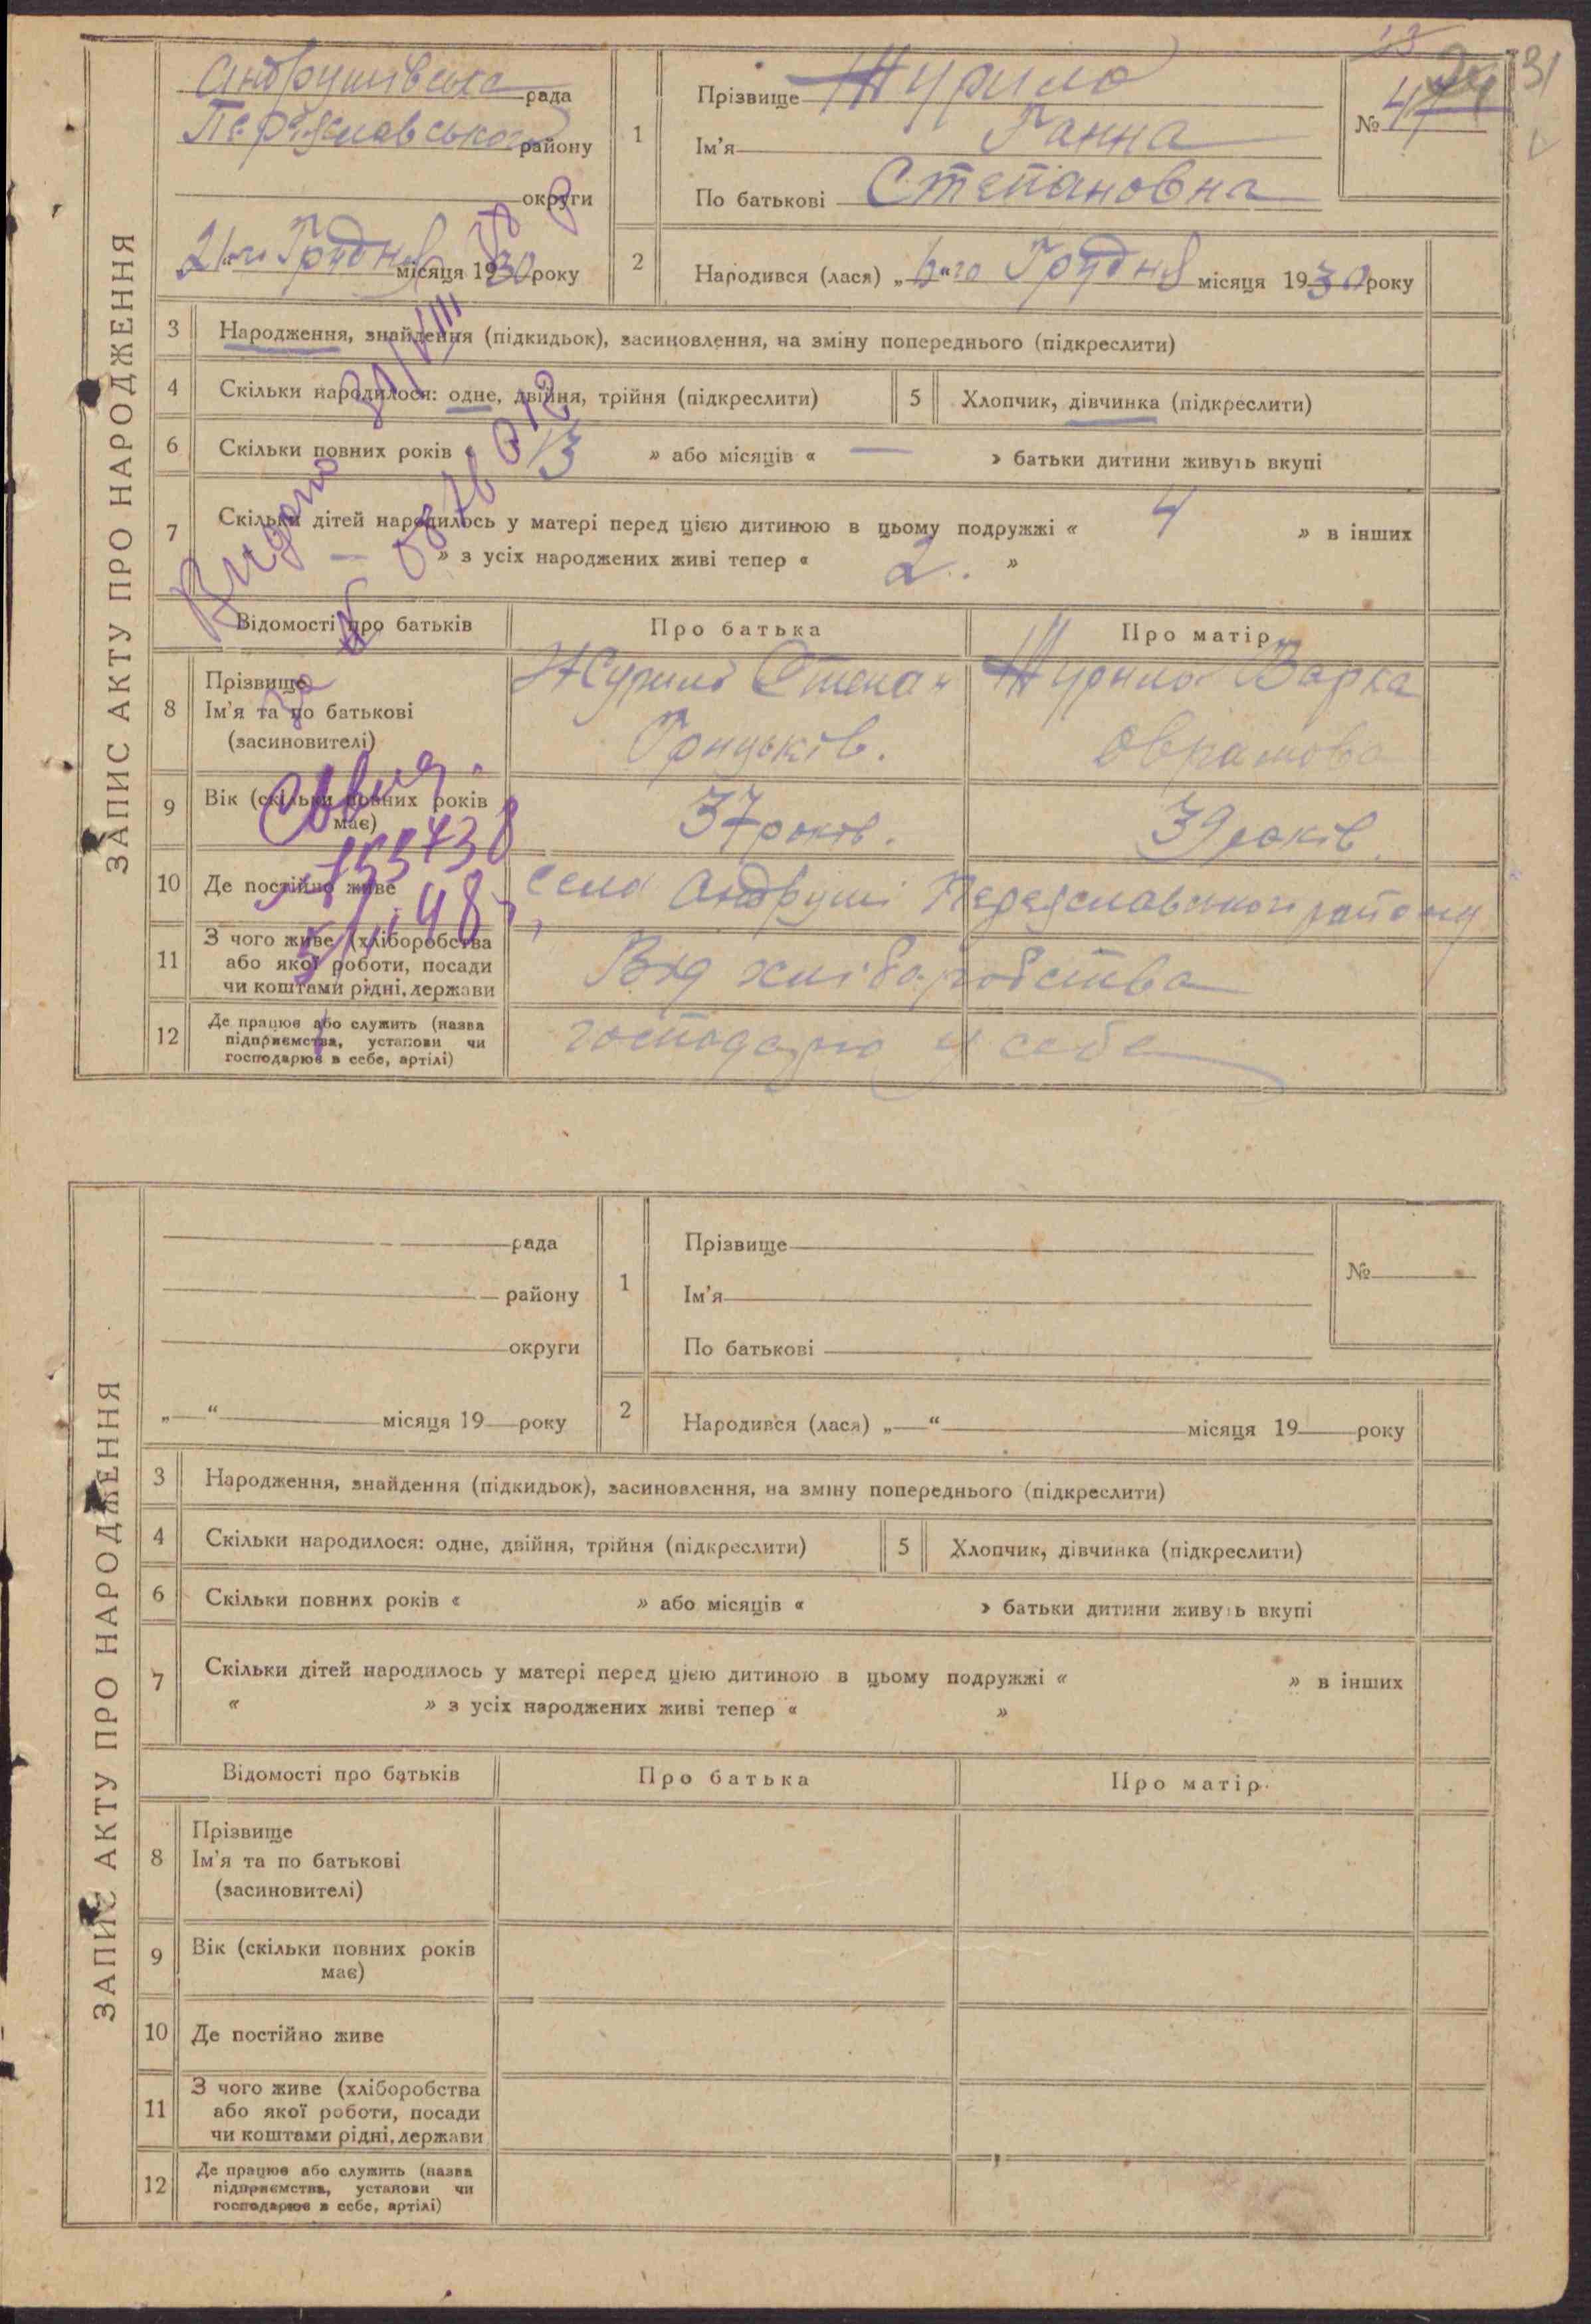 31
ЗАПИС АКТУ ПРО НАРОДЖЕННЯ
Андрушівська рада
Переяславського району
округи
21го Грудня місяця 1930 року
1
Прізвище Журило
Ім'я Ганна
По батькові Степановна
№ 47
2
Народився (лася) „6“го Грудня місяця 1930 року
3 Народження, знайдення (підкидьок), засиновлення, на зміну попереднього (підкреслити)
4 Скільки народилося: одне, двійня, трійня (підкреслити)
5 Хлопчик, дівчинка (підкреслити)
6 Скільки повних років « 13 » або місяців « — » батьки дитини живуть вкупі
7 Скільки дітей народилось у матері перед цією дитиною в цьому подружжі « 4 » в інших
« — » з усіх народжених живі тепер « 2. »
Відомості про батьків
Про батька
Про матір
8 Прізвище
Ім'я та по батькові
(засиновителі)
Журило Степан
Грицьків.
Журило Варка
Оврамова
9 Вік (скільки повних років
має)
37 років.
39 років.
10 Де постійно живе
село Андруші Переяславського району
11 З чого живе (хліборобства
або якої роботи, посади
чи коштами рідні, держави
Від хліборобства
12 Де працює або служить (назва
підприємства, установи чи
господарює в себе, артілі)
господарю у себе
Видано
155438
ЗАПИС АКТУ ПРО НАРОДЖЕННЯ
рада
району
округи
„—“ місяця 19 року
1
Прізвище
Ім'я
По батькові
№
2
Народився (лася) „—“ місяця 19 року
3 Народження, знайдення (підкидьок), засиновлення, на зміну попереднього (підкреслити)
4 Скільки народилося: одне, двійня, трійня (підкреслити)
5 Хлопчик, дівчинка (підкреслити)
6 Скільки повних років « » або місяців « » батьки дитини живуть вкупі
7 Скільки дітей народилось у матері перед цією дитиною в цьому подружжі « » в інших
« » з усіх народжених живі тепер « »
Відомості про батьків
Про батька
Про матір
8 Прізвище
Ім'я та по батькові
(засиновителі)
9 Вік (скільки повних років
має)
10 Де постійно живе
11 З чого живе (хліборобства
або якої роботи, посади
чи коштами рідні, держави
12 Де працює або служить (назва
підприємства, установи чи
господарює в себе, артілі)